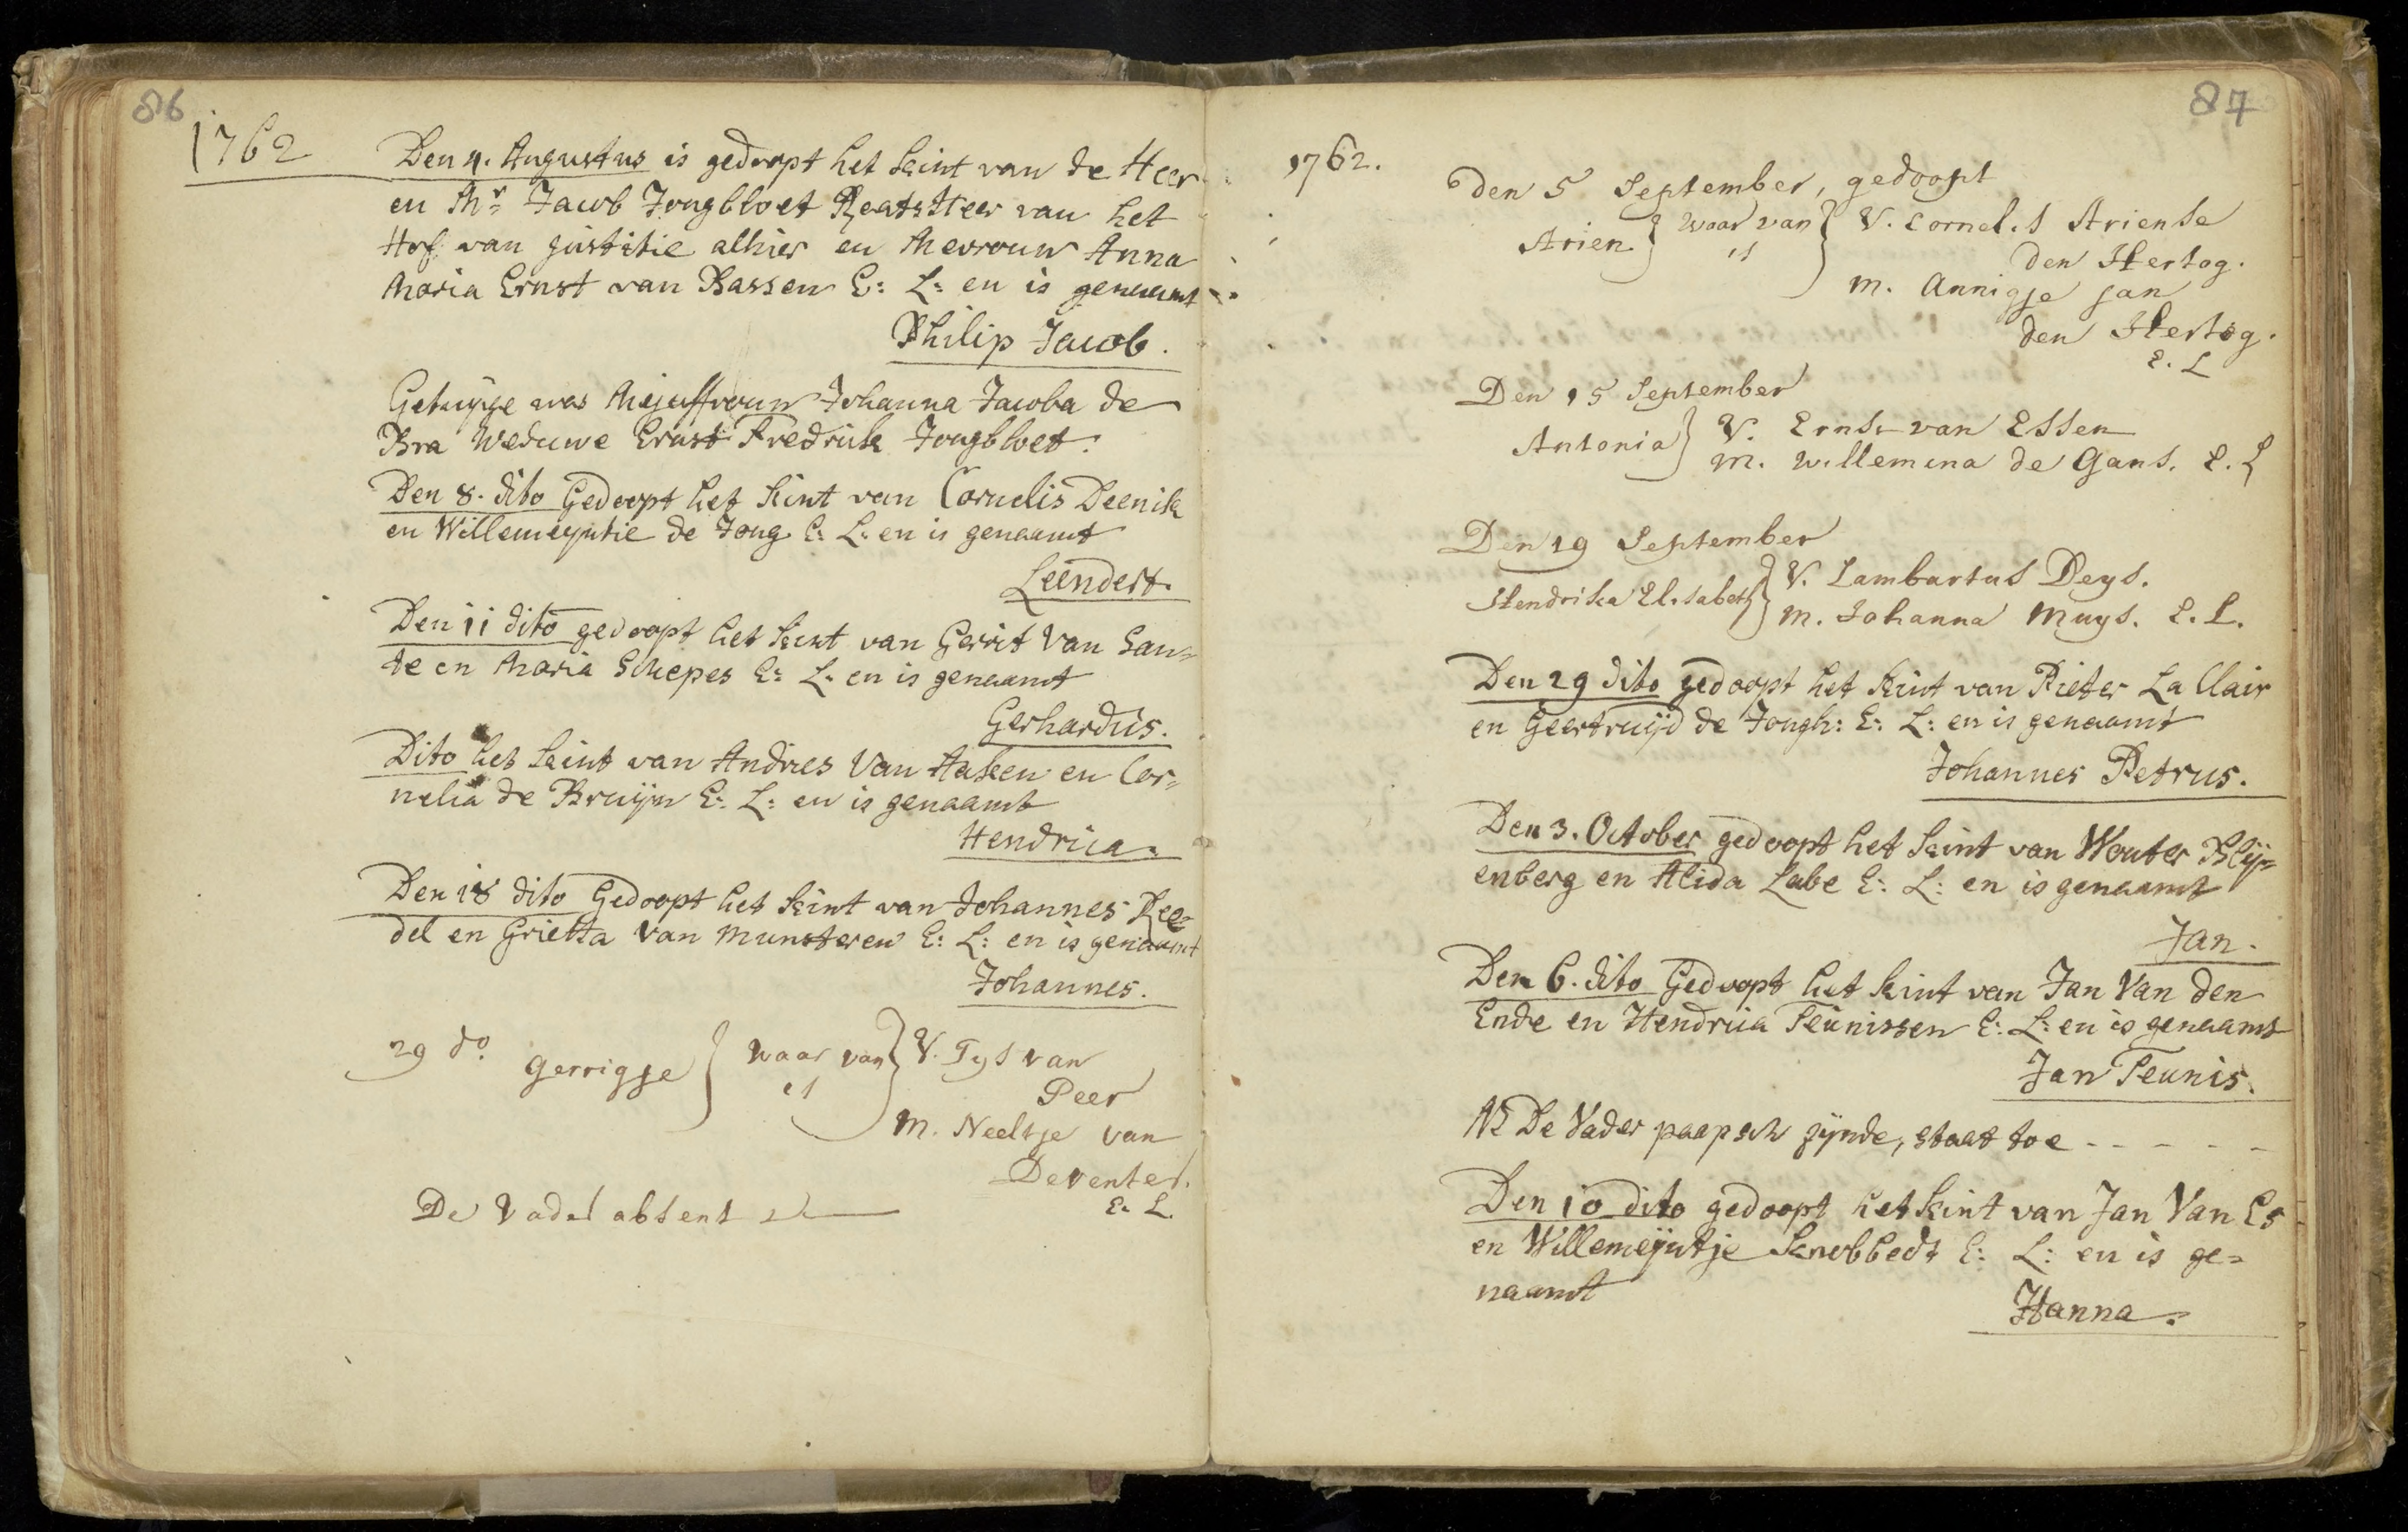 86
1762
Den 4. Augustus is gedoopt het kint van de Heer
en Mr. Jacob Jongbloet Raats Heer van het
Hof van Justitie alhier en Mevrouw Anna
Maria Ernst van Bassen E: L: en is genaamt
Philip Jacob.
Getuyge was Mejuffrouw Johanna Jacoba de
Bra Weduwe Ernst Fredrick Jongbloet.
Den 8. dito Gedoopt het kint van Cornelis Deenik
en Willemeyntie de Jong E: L: en is genaamt
Leendert.
Den 11 dito gedoopt het kint van Gerrit Van San=
de en Maria Schepes E: L: en is genaamt
Gerhardus.
Dito het kint van Andries Van Aaken en Cor=
nelia de Bruijn E: L: en is genaamt
Hendrica.
Den 18 dito Gedoopt het kint van Johannes Ree=
del en Grietta van Munsteren E: L: en is genaamt
Johannes.
29 do. Gerrigje } waar van } V. Tys van
is Peer
M. Neeltje van
Deventer.
E. L.
De Vader absent
87
1762.
den 5 September, gedoopt
Arien } waar van } V. Cornelis Ariense
is den Hertog.
M. Annigje Jan
den Hertog.
E. L
Den 15 September
Antonia } V. Ernst van Essen
M. Willemina de Gans. E. L
Den 19 September
Hendrika Elisabeth } V. Lambartus Deys.
M. Johanna Muys. E. L.
Den 29 dito gedoopt het kint van Pieter La Clair
en Geertruijd de Jongh: E: L: en is genaamt
Johannes Petrus.
Den 3. October gedoopt het kint van Wouter Blij=
enberg en Alida Labe E: L: en is genaamt
Jan.
Den 6. dito Gedoopt het kint van Jan Van den
Ende en Hendrica Teunissen E: L: en is genaamt
Jan Teunis.
NB De Vader paapsch zijnde, staat toe - - - - -
Den 10 dito gedoopt het kint van Jan Van Es
en Willemeijntje Knobbedt E: L: en is ge=
naamt
Hanna.